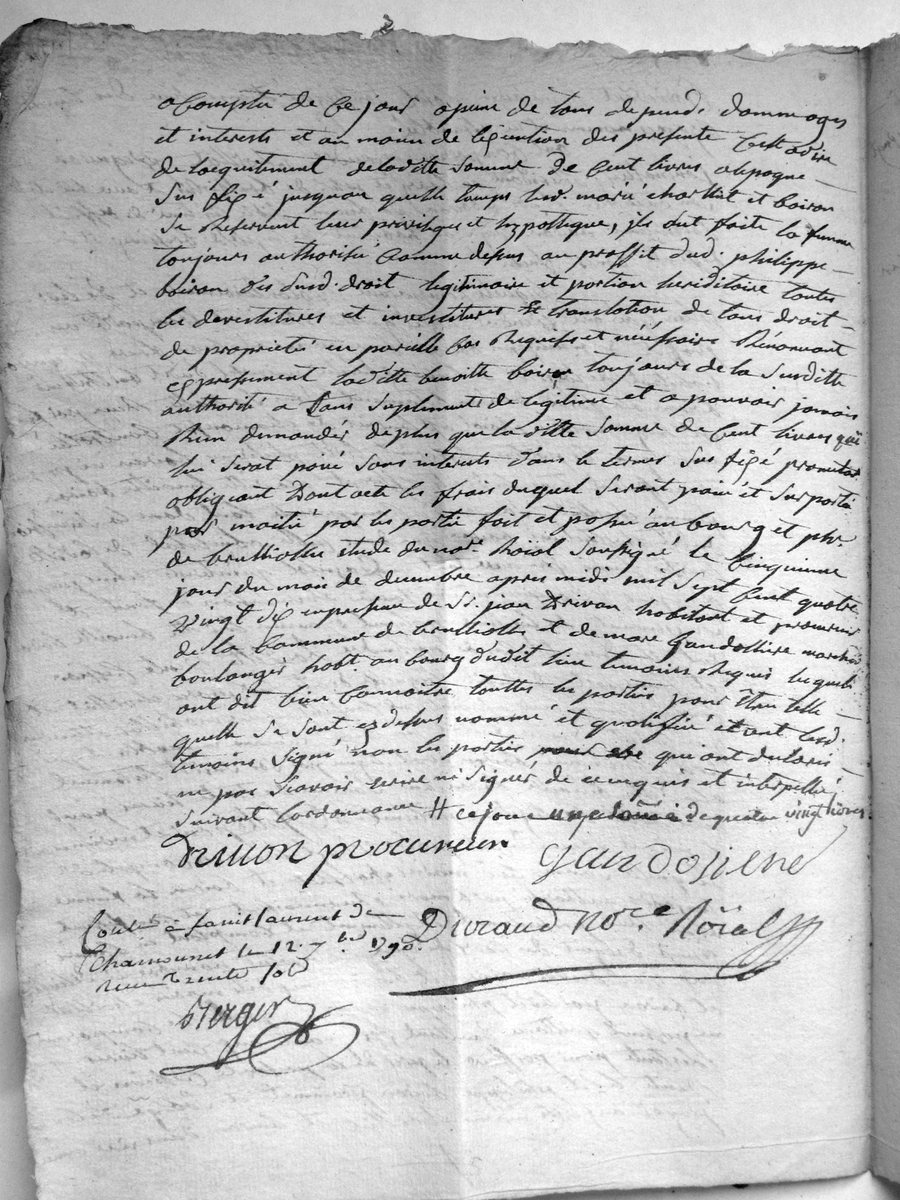 a Compté de Ce jour a peine de tous depend. dommages
et interests et au moien de lexecution des presente Cest adire
de lacquitement de laditte Somme de Cent livres alepoque
Sus fixé jusquau quelle temps lesd. marié et boiron
Se Reservent leur privileges et hypotteque, ils ont faite la femme
toujours authorisée Comme dessus au proffit dud. philippe
boiron des susd. droit legitimaire et portion hereditaire toutes
les devestitures et investitures translation de tous droit
de proprieté en pareille Cas Requises et néssésaire Renoncant
expressement laditte benoitte boiron toujours de la Susditte
authorité a tous suplements de légitime et a pouvoir jamais
Rien demander de plus que la ditte Somme de Cent livres qui
lui serat paié sans interests dans le termes Sus fixé promettant
obligeant Dont acte les frais duquel seront paié et Suporté
par moitié par les partie fait et passé au bourg et phe.
de brullioles étude du nore. Roial Soussigné le Cinquieme
jour du mois de decembre apres midi mil Sept Cent quatre
vingt dix en presence de Sr. jean Drivon habitant et procureur
de la Commune de brullioles et de marc Gaudolliere marchand
boulanger habt. au bourg dudit lieu temoins Requis lequels
ont dit bien Connaitre touttes les parties pour Etre telle
quelle Se sont cy dessus nommé et qualiffié et ont lesd.
temoins Signé non les parties qui ont declaré
ne pas scavoir ecrire ni Signer de ce enquis et interpellé
Suivant lordonnance ce jour de quatre vingt livres
drivon procureur
Gaudoliere
Durand Nore. Roïal
Conté. à saint laurent de
Chamousset le 12. xbre 1790.
recu trente sols
Berger